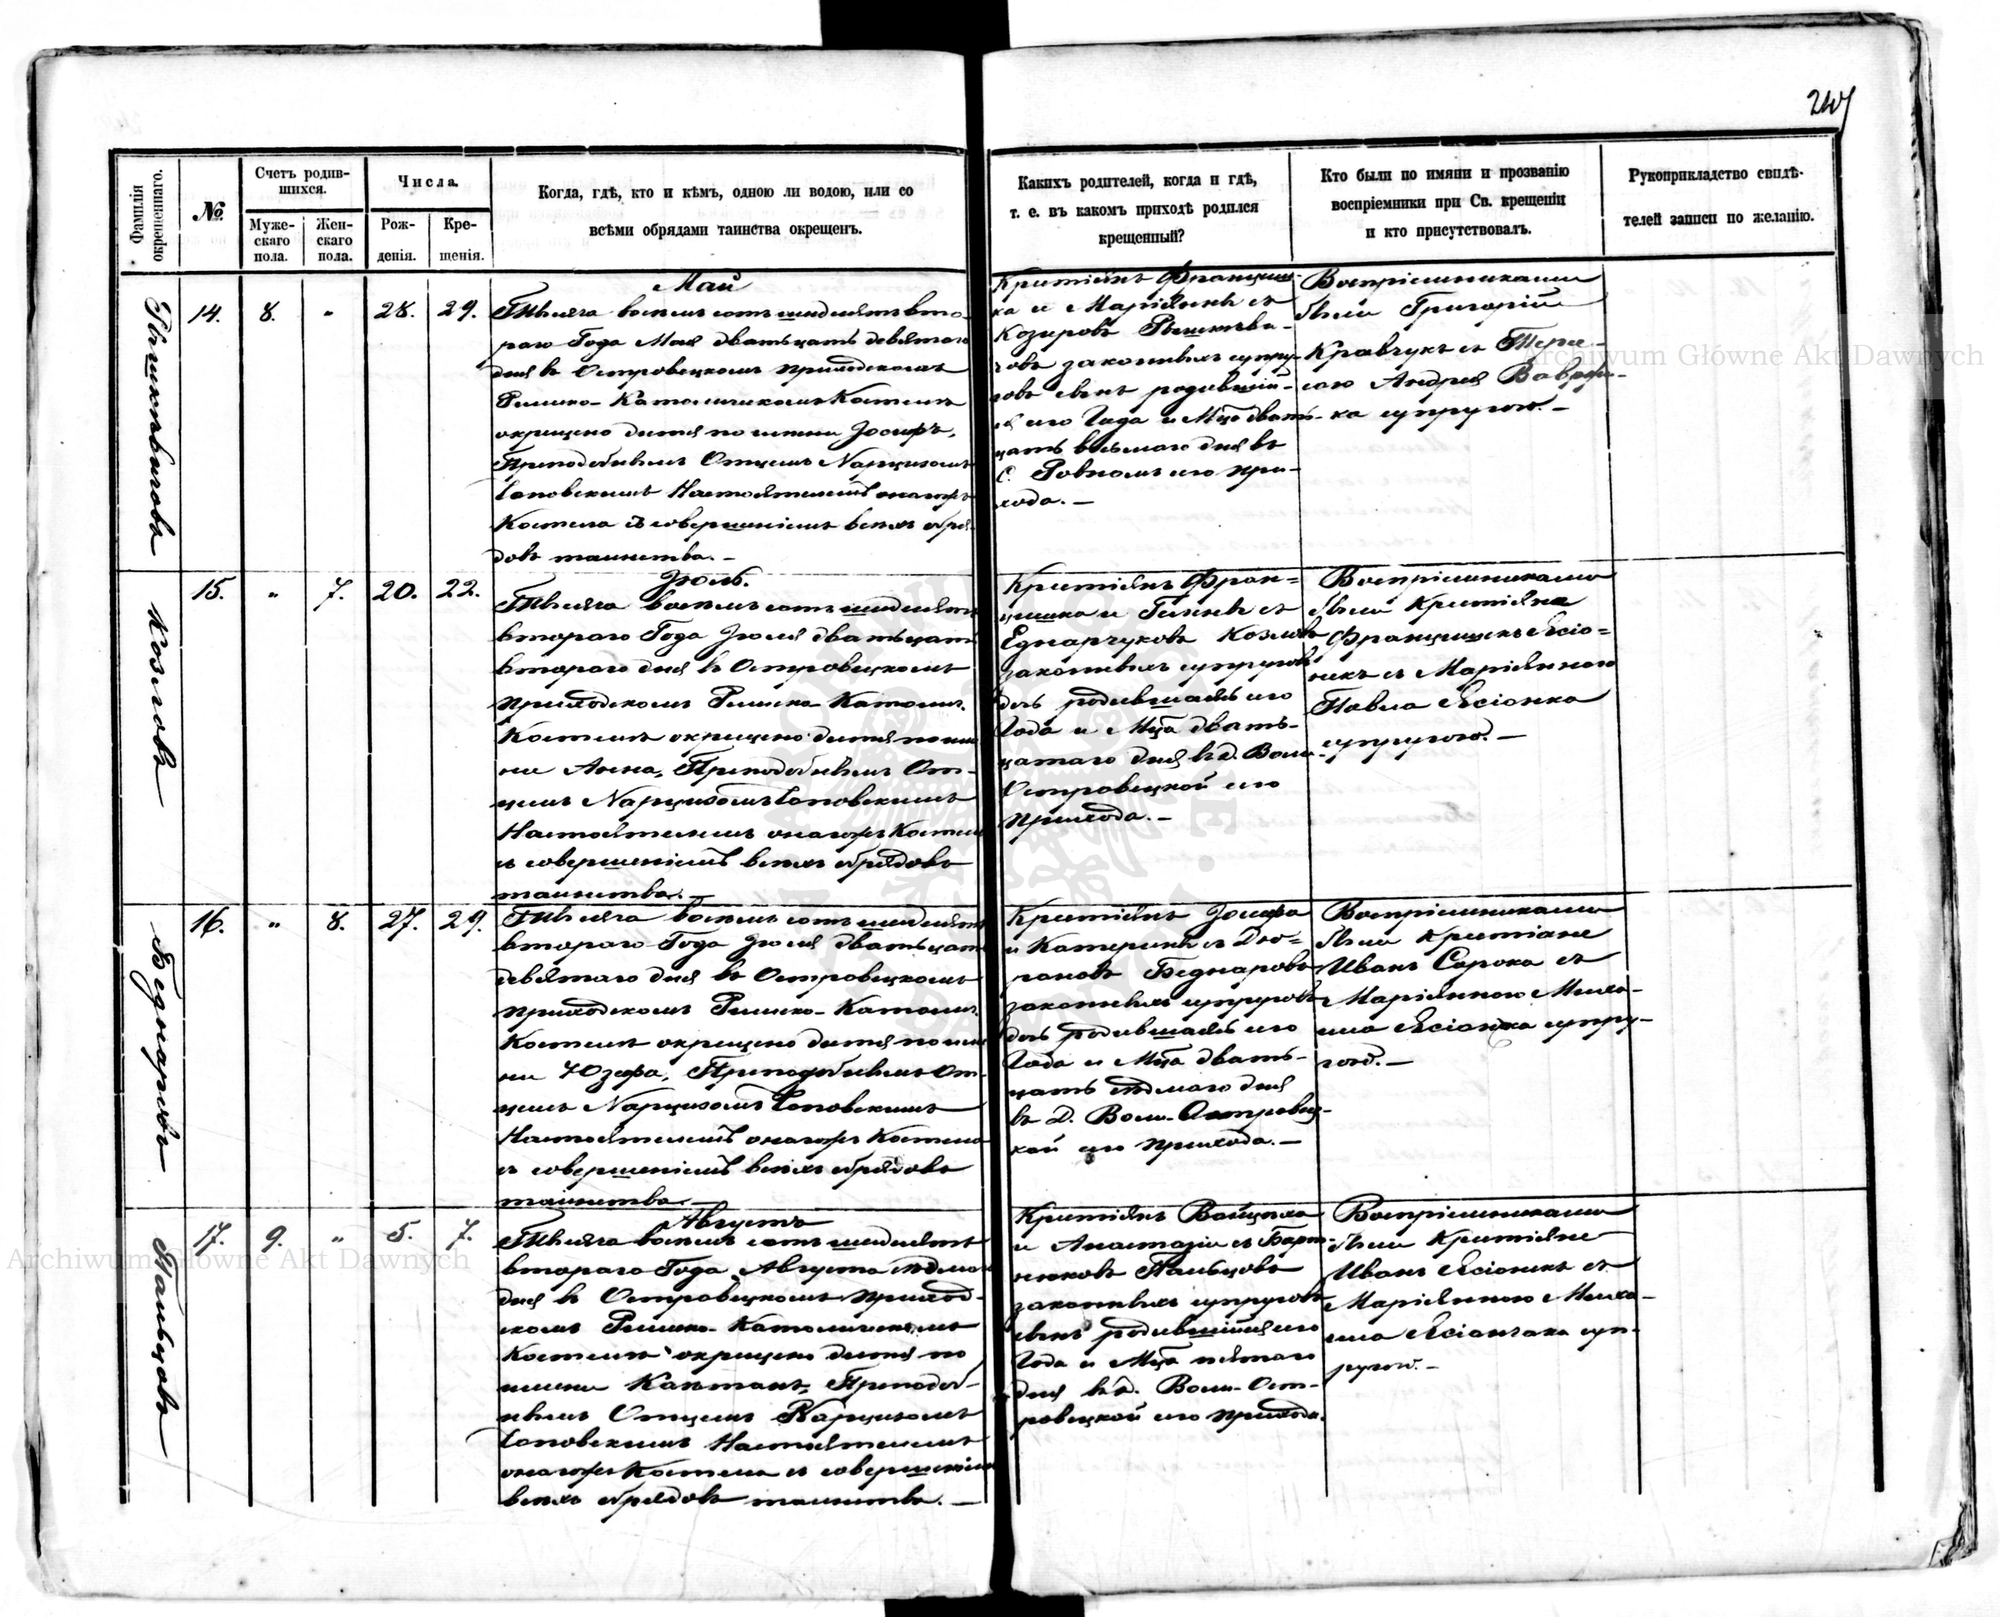 247
Фамилія окрещеннаго.
№
Счетъ родив-
шихся.
Муже-
скаго
пола.
Жен-
скаго
пола.
Числа.
Рож-
денія.
Кре-
щенія.
Когда, гдѣ, кто и кѣмъ, одною ли водою, или со
всѣми обрядами таинства окрещенъ.
Какихъ родителей, когда и гдѣ,
т. е. въ какомъ приходѣ родился
крещенный?
Кто были по имяни и прозванію
воспріемники при Св. крещеніи
и кто присутствовалъ.
Рукоприкладство свидѣ-
телей записи по желанію.
14. 8. „ 28. 29.
Май
Тысяча восемьсотъ шестьдесятъ вто-
раго Года Мая двадцать девятаго
дня въ Островецкомъ приходскомъ
Римско-Католическомъ Костелѣ
окрещено дитя по имени Іосифъ,
Преподобнымъ Отцемъ Нарцизомъ
Настоятелемъ онагожъ
Костела съ совершеніемъ всѣхъ обря-
довъ таинства. —
Крестьянъ Францишка
и Маріянны съ
Козировъ
законныхъ супру-
говъ сынъ родившій-
ся сего Года и Мца двать-
цать восьмаго дня въ
С. Ровномъ сего при-
хода. —
Воспріемниками
были Григорій
Кравчукъ съ Тере-
сою Андрея
супругою. —
Козловъ
15. „ 7. 20. 22.
Іюль.
Тысяча восемьсотъ шестьдесятъ
втораго Года Іюля двадцать
втораго дня въ Островецкомъ
приходскомъ Римско-Католич.
Костелѣ окрещено дитя по име-
ни Анна, Преподобнымъ От-
цемъ Нарцизомъ
Настоятелемъ онагожъ Костела
съ совершеніемъ всѣхъ обрядовъ
таинства. —
Крестьянъ Фран-
цишка и съ
Еднарчуковъ Козловъ
законныхъ супруговъ
дочь родившаясь сего
Года и Мца двать-
цатаго дня въ д. Воли-
Островецкой сего
прихода. —
Воспріемниками
были Крестьяне
Францишекъ Ясіо-
некъ съ Маріянною
Павла Ясіонка
супругою. —
Беднаровъ
16. „ 8. 27. 29.
Тысяча восемьсотъ шестьдесятъ
втораго Года Іюля двадцать
девятаго дня въ Островецкомъ
приходскомъ Римско-Католич.
Костелѣ окрещено дитя по име-
ни Юзефа, Преподобнымъ От-
цемъ Нарцизомъ
Настоятелемъ онагожъ Костела
съ совершеніемъ всѣхъ обрядовъ
таинства. —
Крестьянъ Іосифа
и Катерины съ
Беднаровъ
законныхъ супруговъ
дочь родившаясь сего
Года и Мца двать-
цать седмаго дня
въ Д. Воли-Островец-
кой сего прихода. —
Воспріемниками
были Крестьяне
Иванъ Сорока съ
Маріянною Миха-
ила Ясіонка супру-
гою. —
Пальцовъ
17. 9. „ 5. 7.
Августъ
Тысяча восемьсотъ шестьдесятъ
втораго Года Августа седмаго
дня въ Островецкомъ приход-
скомъ Римско-Католическомъ
Костелѣ окрещено дитя по
имени Каетанъ, Преподоб-
нымъ Отцемъ Нарцизомъ
Настоятелемъ
онагожъ Костела съ совершеніемъ
всѣхъ обрядовъ таинства. —
Крестьянъ Войцеха
и Анастазіи съ
Пальцовъ
законныхъ супруговъ
сынъ родившійся сего
Года и Мца пятаго
дня въ д. Воли-Ост-
ровецкой сего прихода.
Воспріемниками
были Крестьяне
Иванъ Ясіонекъ съ
Маріянною Миха-
ила суп-
ругою. —
Archiwum Główne Akt Dawnych
Archiwum Główne Akt Dawnych